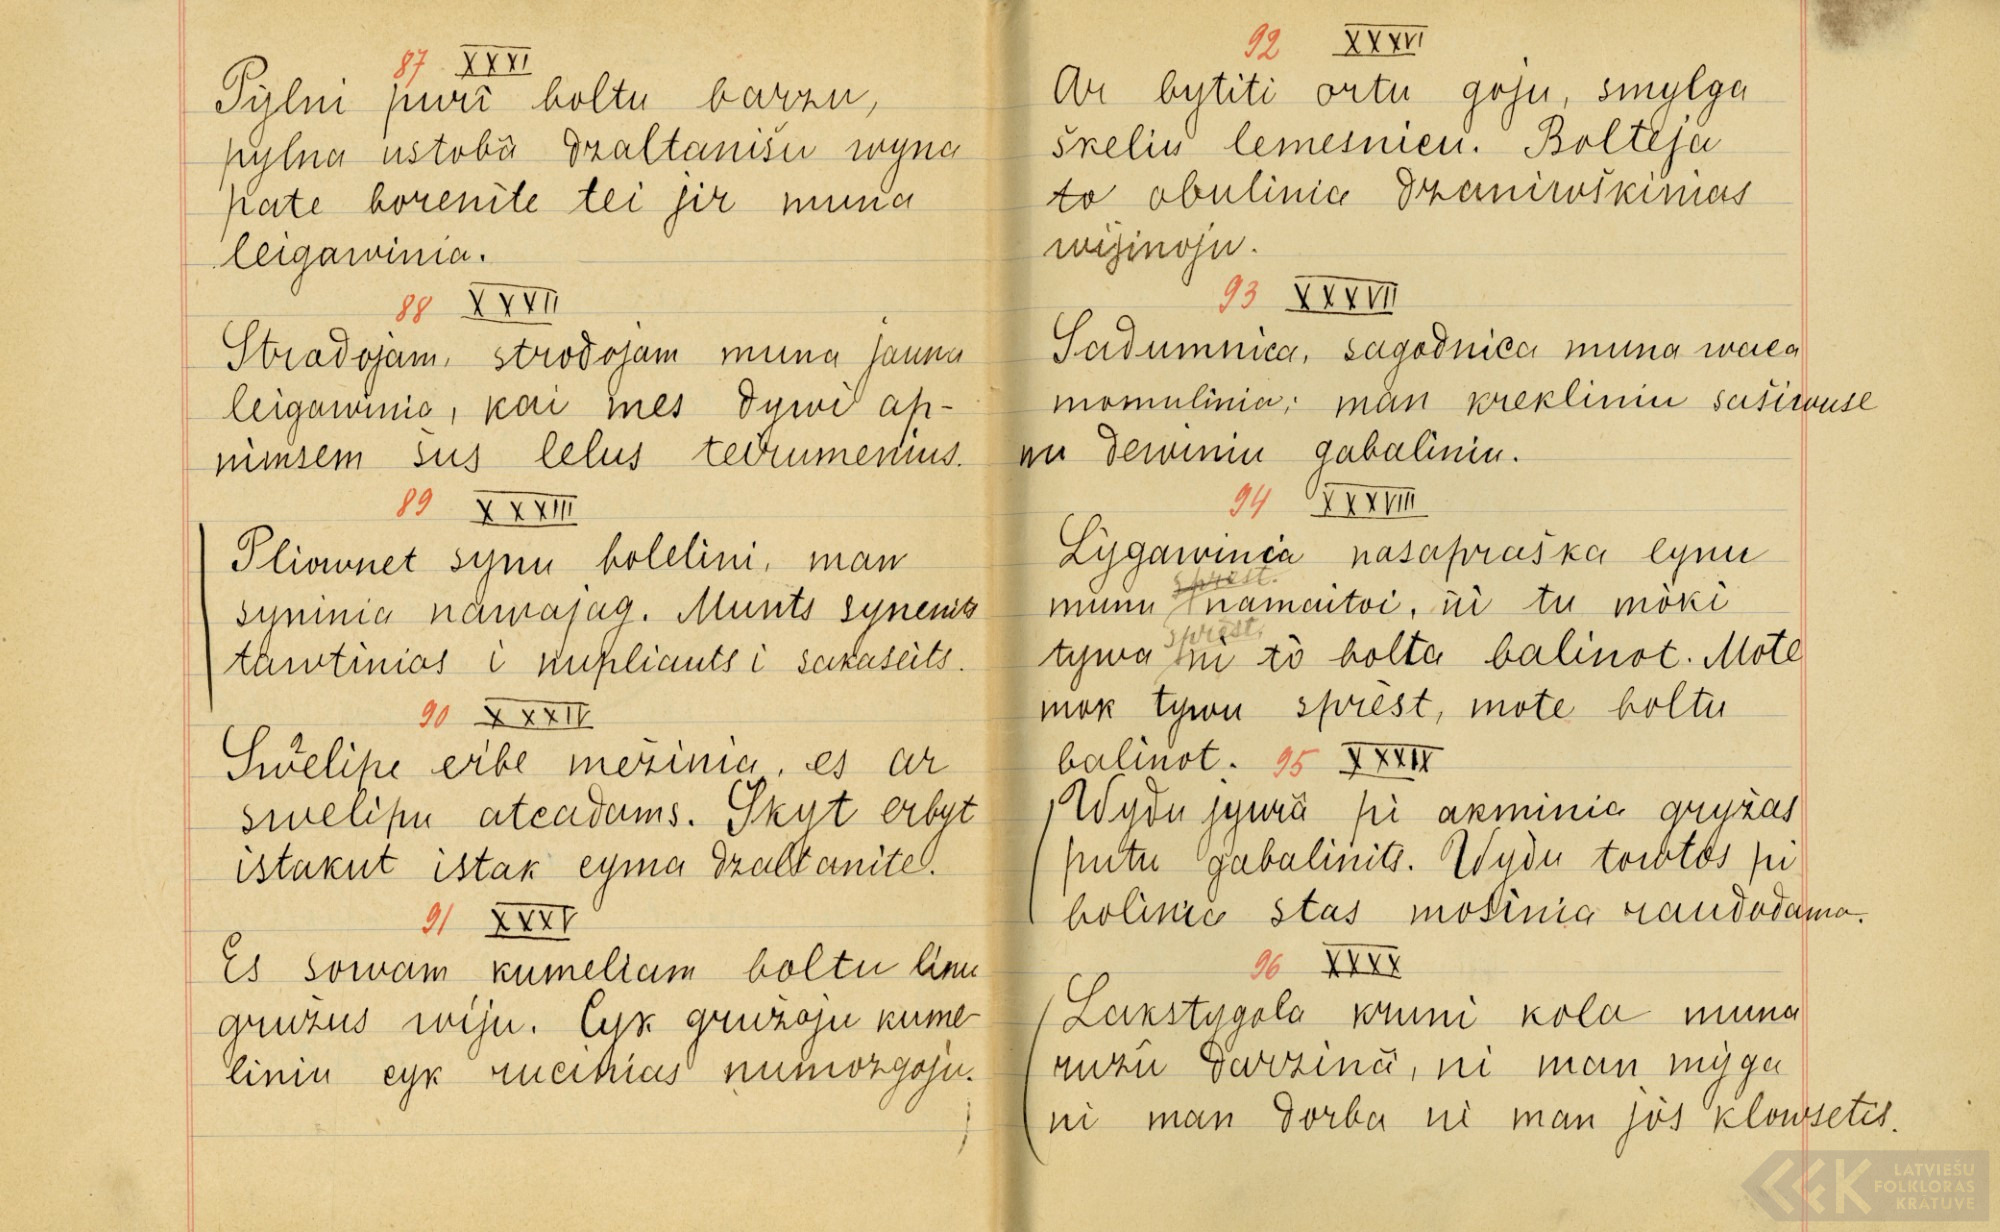 87 XXXI
Pylni purî boltu barzu,
pylna ustobâ dzaltanišu wyna
pate borenite tei jir muna
leigawinia.
88 XXXII
Stradojam, strodojam muna jauna
leigawinia, kai mes dywi ap-
nimsem šus lelus teirumenius.
89 XXXIII
Pliownet synu bolelini, man
syninia nawajag. Munts synenits
tawtinias i nupliauts i sakaseits.
90 XXXIV
Swelipe eibe mežinia, es ar
swelipu atcadams. Skyt erbyt
istakut istak cyma dzaltanite.
91 XXXV
Es sowam kumeliam boltu linu
gružus wiju. Cyk gružoju kume-
liniu cyk rucinias numozgoju.
92 XXXVI
Ar bytiti ortu goju, smylga
škeliu lemesnicu. Bolteja
to obulinia dzaniwškinias
wijinoju.
93 XXXVII
Sadumnica, sagodnica muna waca
momulinia; man krekliniu sašiwuse
nu dewiniu gabaliniu.
94 XXXVIII
Lygawinia nasapraška cynu
sprest.
munu namaitoi, ni tu mòki
sprest,
tywa ni tò bolta balinot. Mote
mok tywu sprèst, mote boltu
balinot. 95 XXXIX
Wydu jywrâ pi akminia gryžas
putu gabalinits. Wydu towtos pi
bolinia stas mosinia raudodama.
96 XXXX
Lakstygola kruni kola muna
ružû darzinâ, ni man myga
ni man dorba ni man jòs klowsetis.
LATVIEŠU
FOLKLORAS
KRĀTUVE